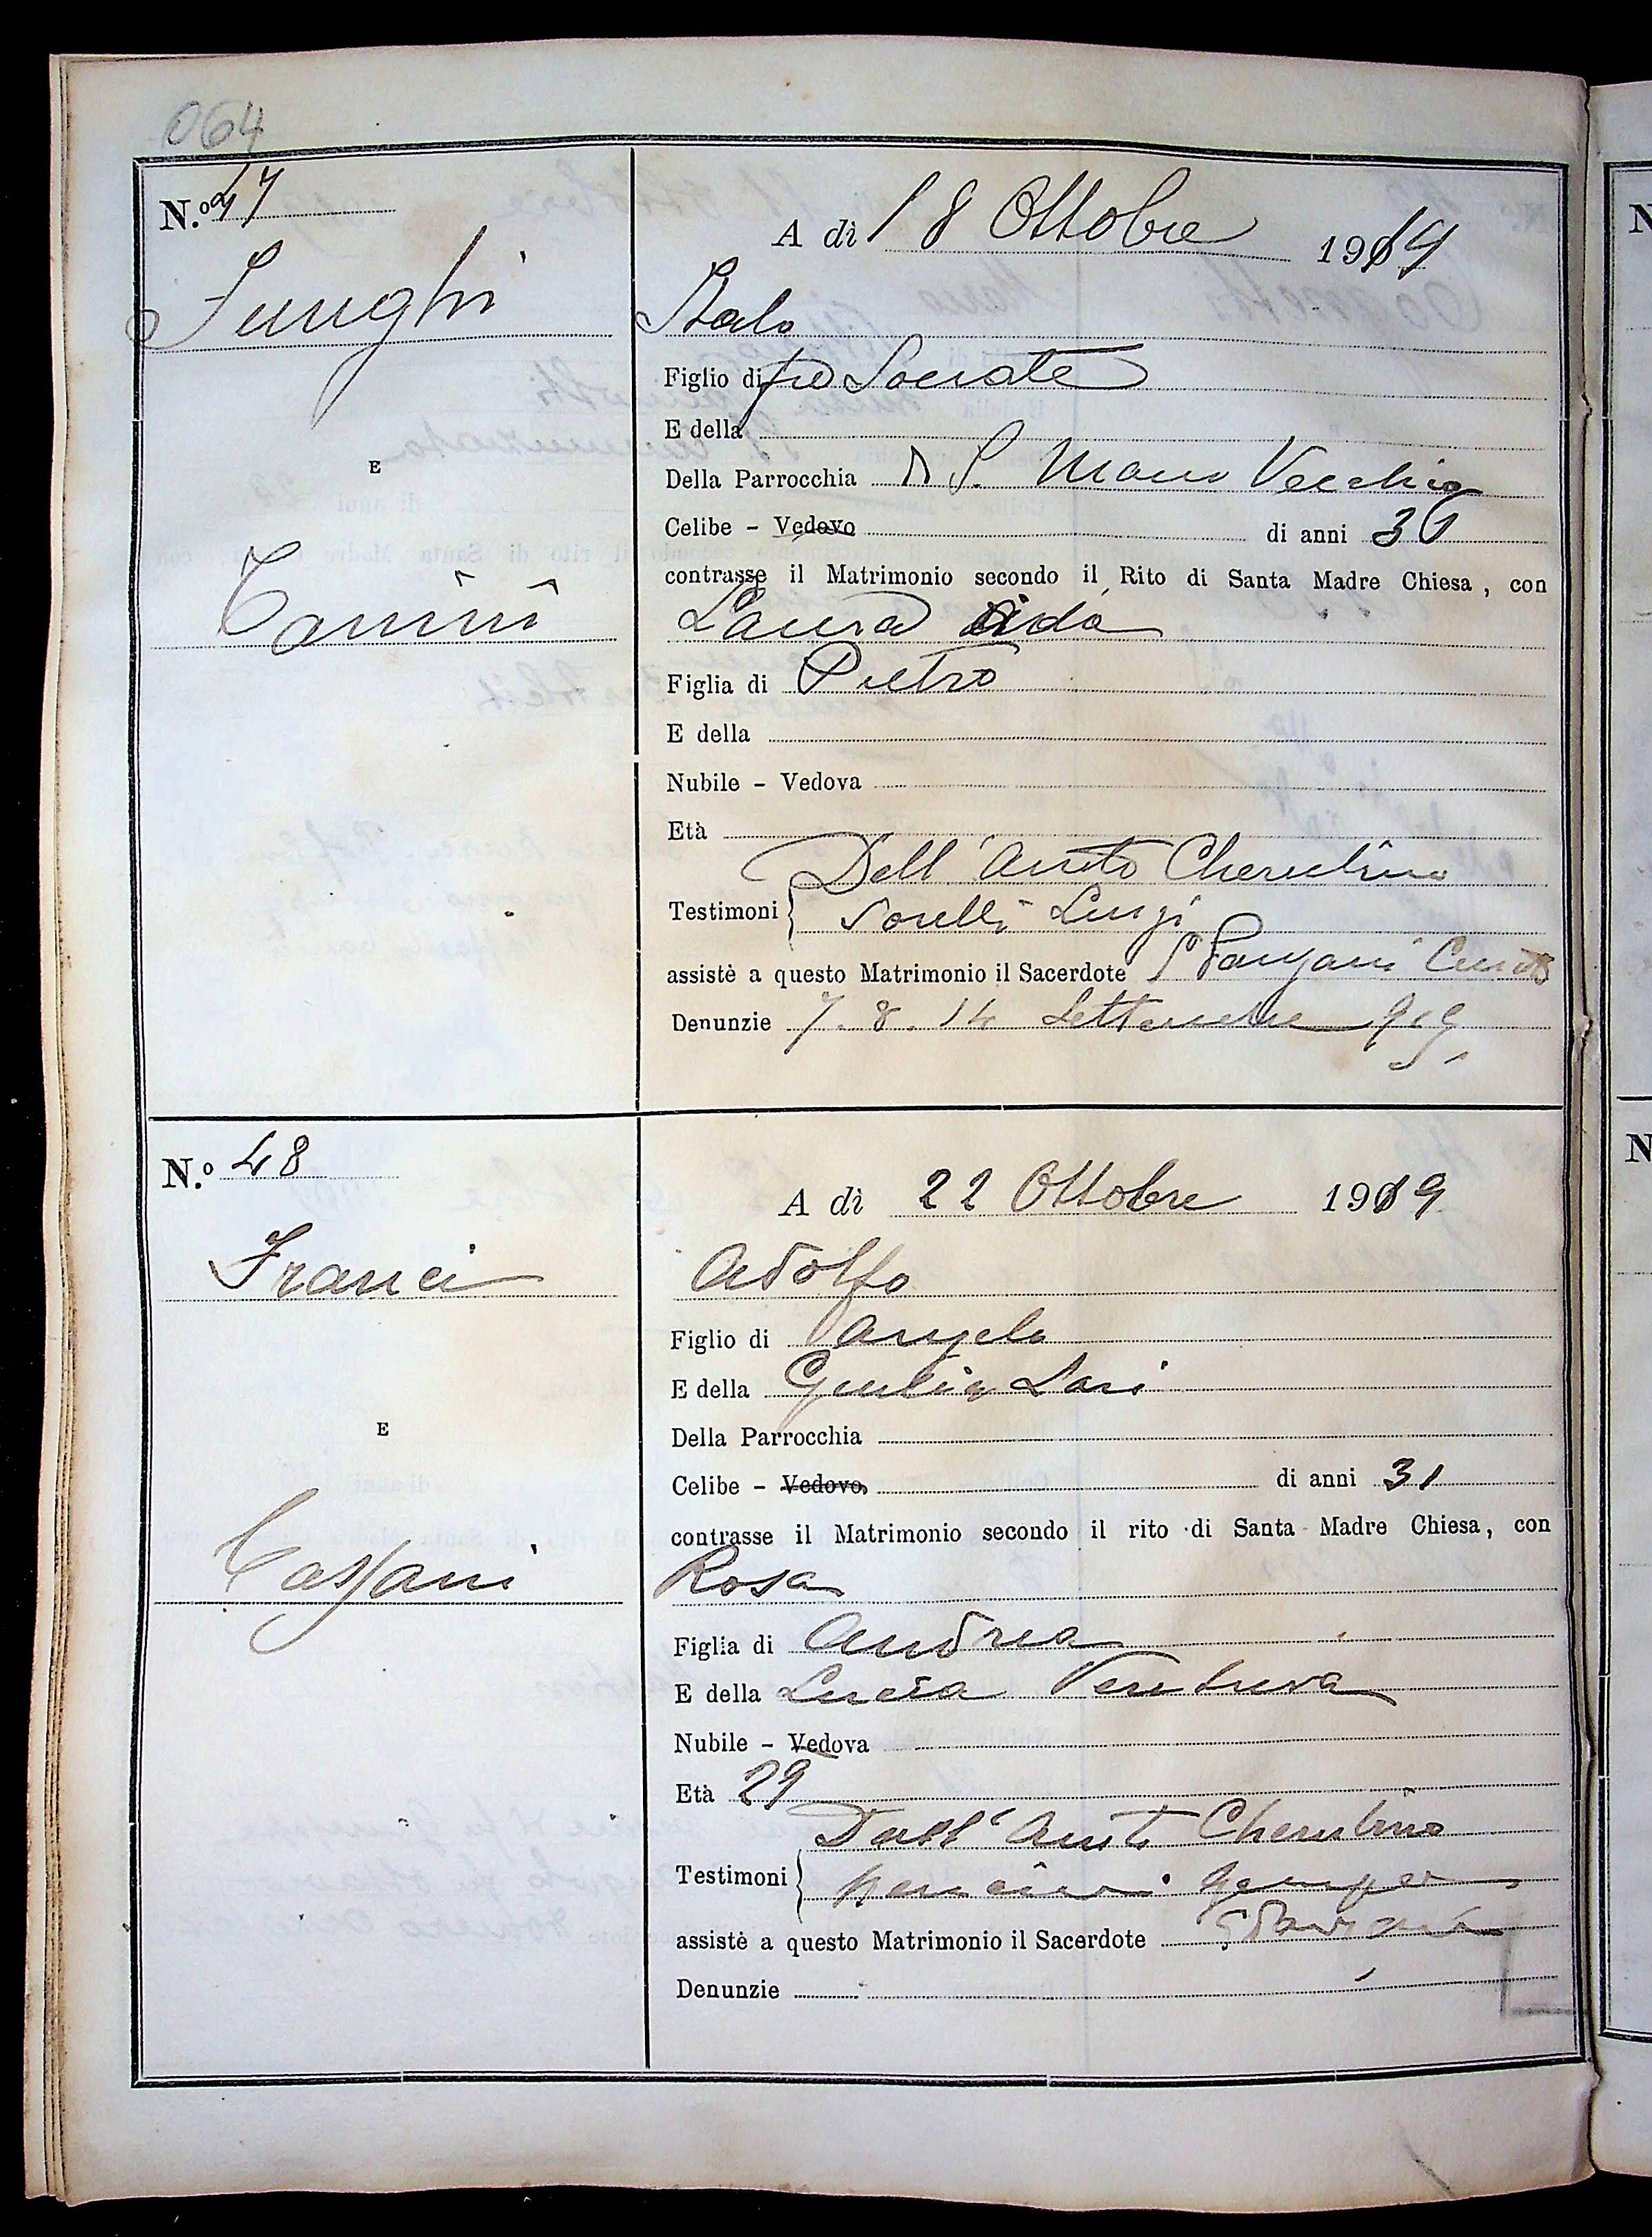 064
N.º 47
A dì 18 Ottobre 1919
Funghi
Italo
Figlio di fu Socrate
E della
Della Parrocchia di S. Marco Vecchio
E
Celibe - Vedovo di anni 36
contrasse il Matrimonio secondo il Rito di Santa Madre Chiesa, con
Tanini
Laura Aida
Figlia di Pietro
E della
Nubile - Vedova
Età
Dell'Aiuto Cherubino
Testimoni Sorelli Luigi
assistè a questo Matrimonio il Sacerdote
Denunzie 7. 8. 14 Settembre 919
N.º 48
A dì 22 Ottobre 1919
Franci
Adolfo
Figlio di Angelo
E della Giulia Lari
E
Della Parrocchia
Celibe - Vedovo di anni 31
contrasse il Matrimonio secondo il rito di Santa Madre Chiesa, con
Cassani
Rosa
Figlia di Andrea
E della Lucia Ventura
Nubile - Vedova
Età 29
Dell'Aiuto Cherubino
Testimoni
assistè a questo Matrimonio il Sacerdote
Denunzie
N
N